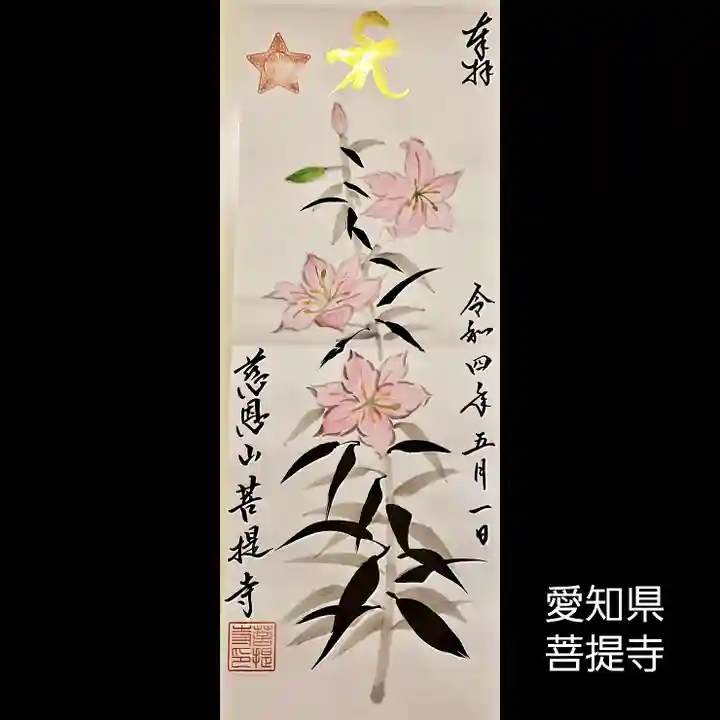 奉拝
令和四年五月一日
慈恩山菩提寺
菩提
寺印
愛知県
菩提寺